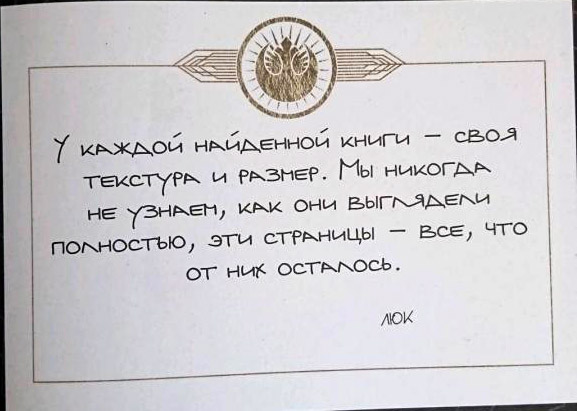 У каждой найденной книги – своя
текстура и размер. Мы никогда
не узнаем, как они выглядели
полностью, эти страницы – все, что
от них осталось.
люк